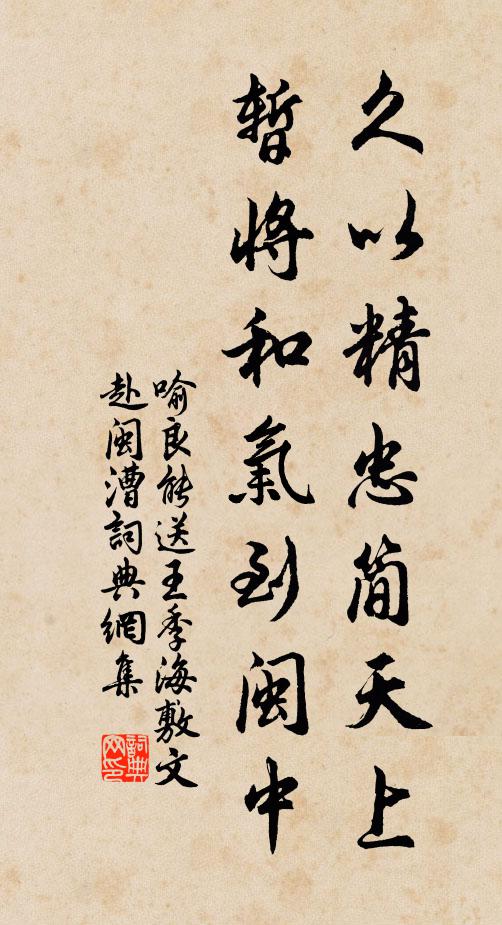 久以精忠简天上
暫將和氣到閩中
喻良能送王季海敷文
赴閩漕詞典網集
詞典
网印